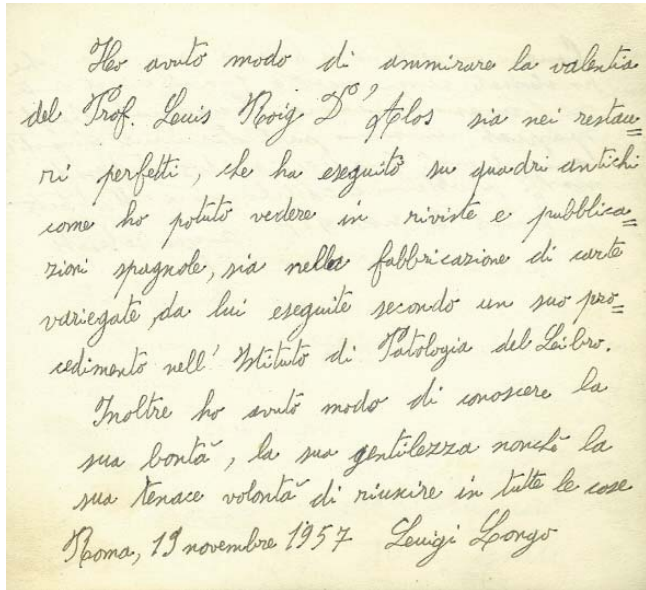 Ho avuto modo di ammirare la valentia
del Prof. Luis Roig D'Alos sia nei restau=
ri perfetti, che ha eseguito su quadri antichi
come ho potuto vedere in riviste e pubblica=
zioni spagnole, sia nella fabbricazione di carte
variegate, da lui eseguite secondo un suo pro=
cedimento nell'Istituto di Patologia del Libro.
Inoltre ho avuto modo di conoscere la
sua bontà, la sua gentilezza nonchè la
sua tenace volontà di riuscire in tutte le cose
Roma, 19 novembre 1957 Luigi Longo